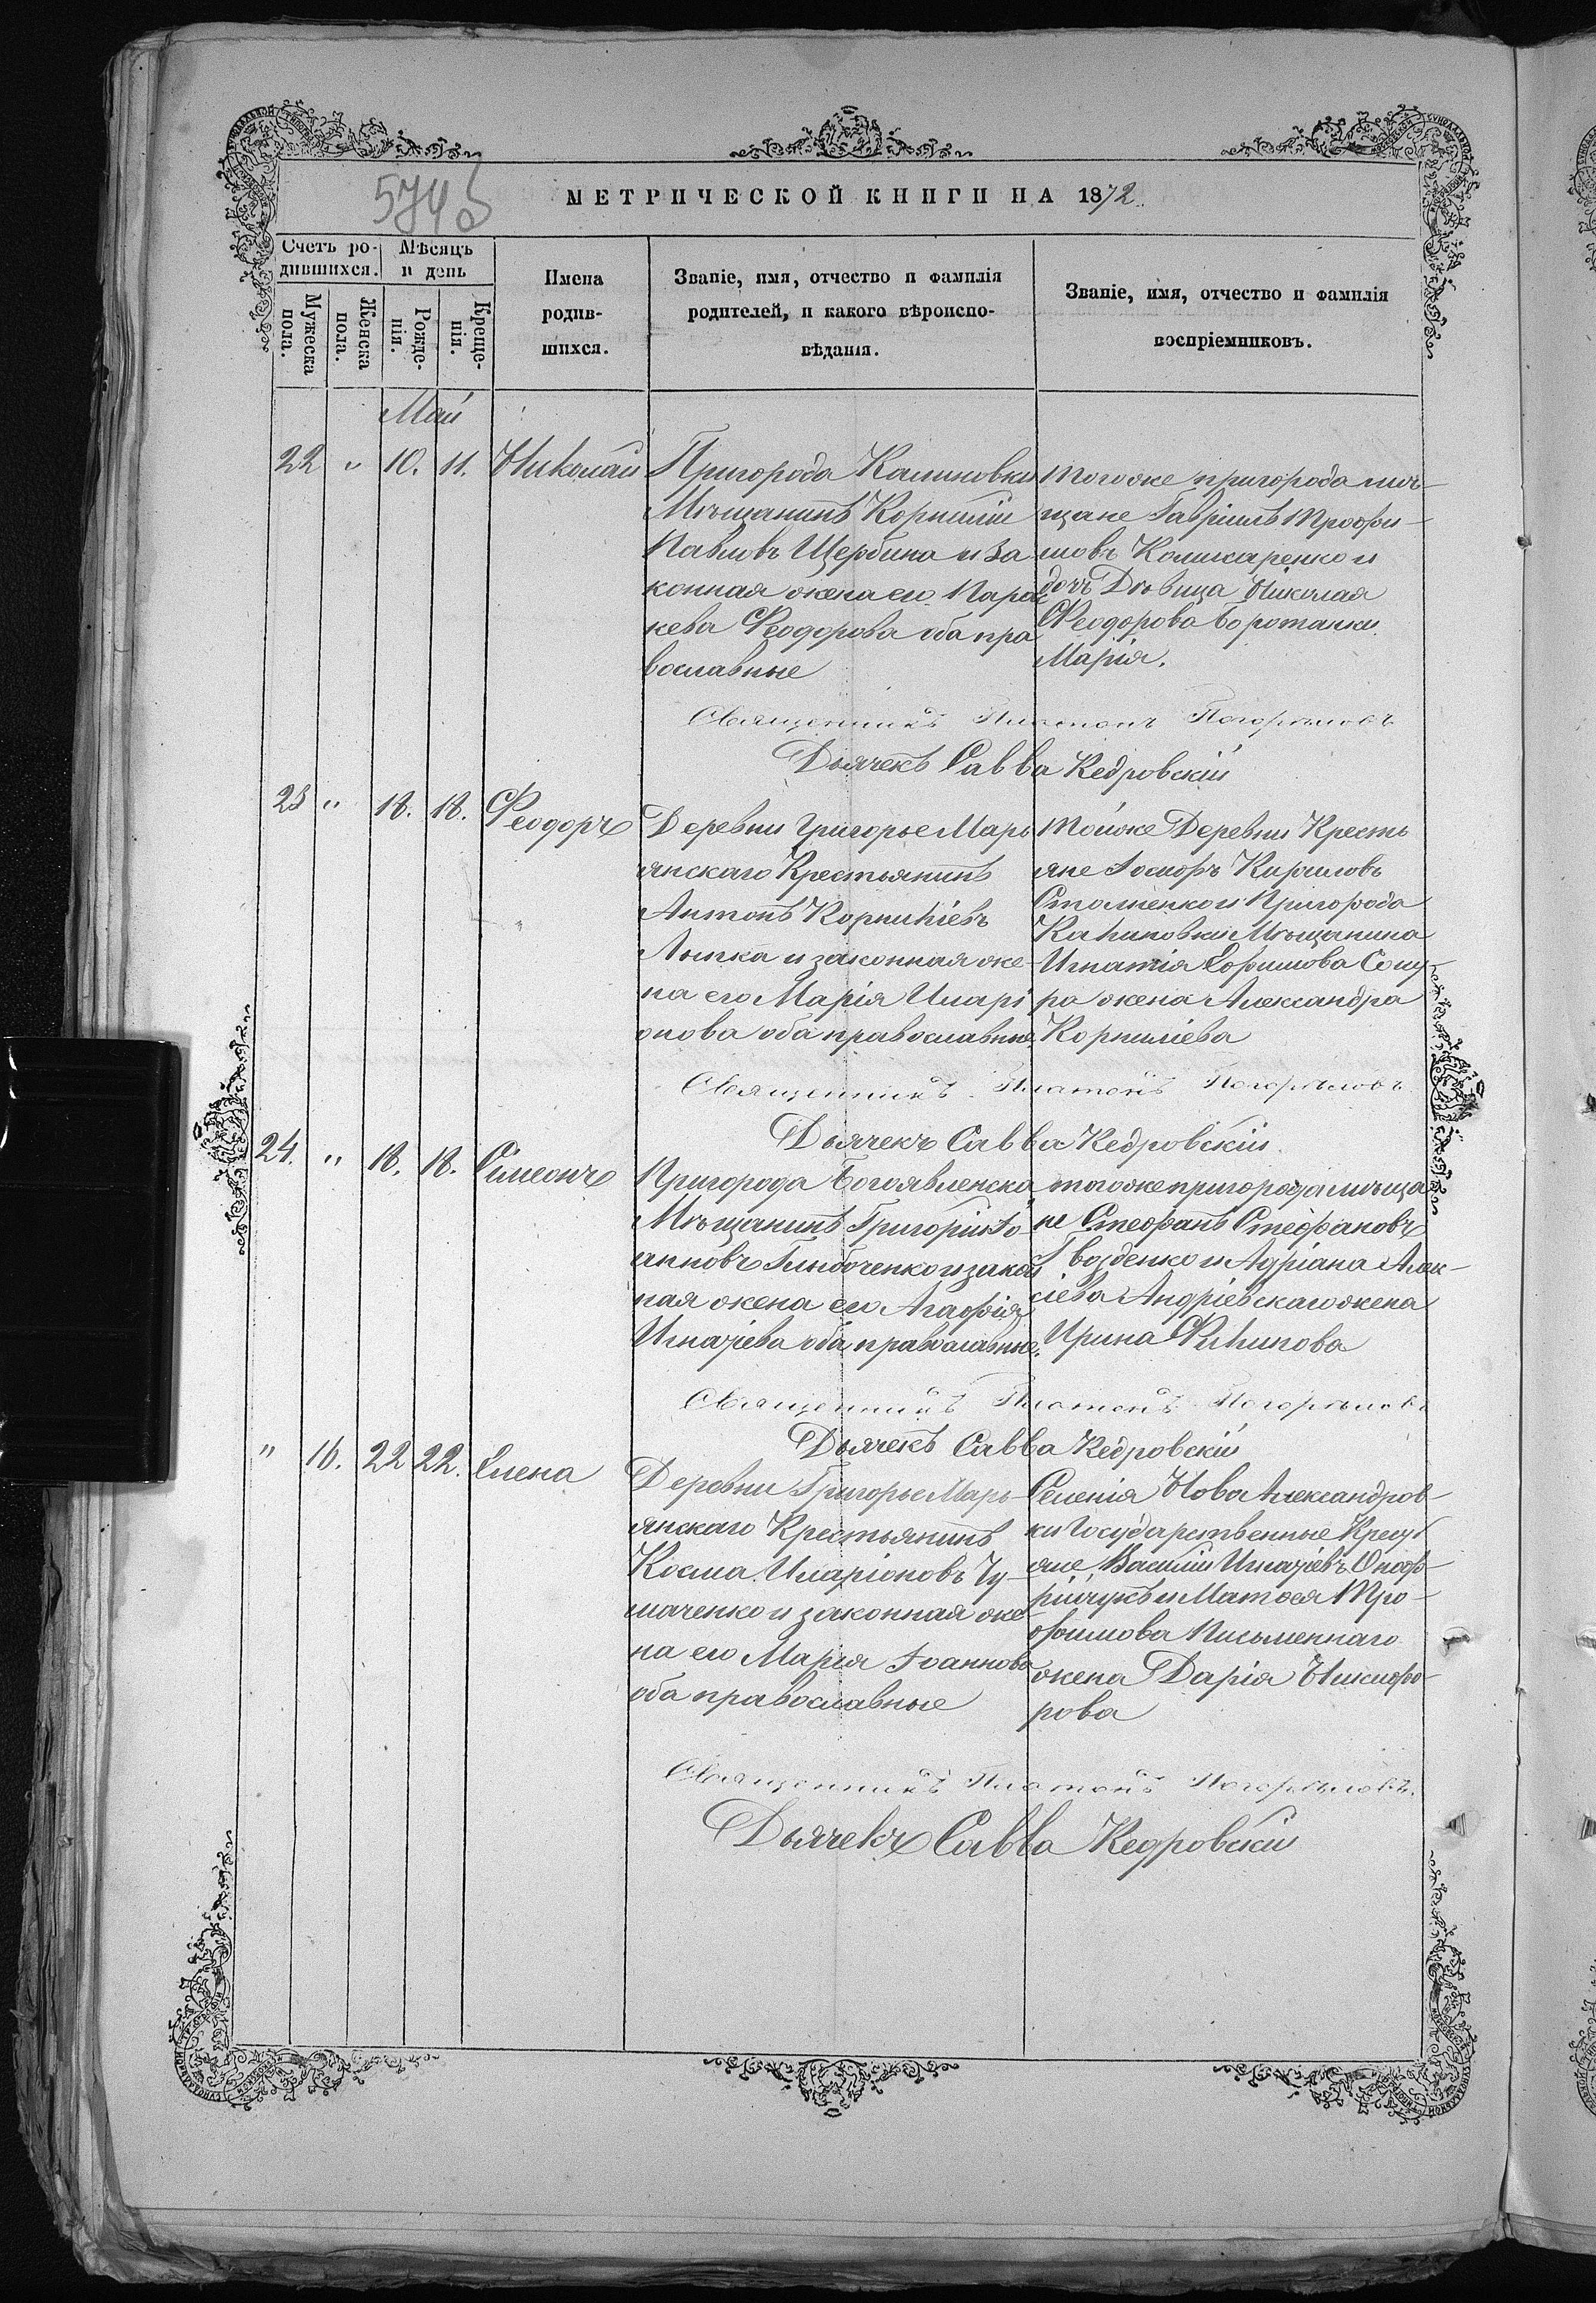 МЕТРИЧЕСКОЙ КНИГИ НА 1872.
Счетъ родившихся.
Мужеска пола.
Женска пола.
Мѣсяцъ и день
Рожденія.
Крещенія.
Имена
родив-
шихся.
Званіе, имя, отчество и фамилія
родителей, и какого вѣроиспо-
вѣданія.
Званіе, имя, отчество и фамилія
воспріемниковъ.
Май
22 " 10. 11. Николай
Пригорода Калиновки
Мѣщанинъ Корнилій
Павловъ Щербина и за
конная жена его Парас
кева Ѳеодорова оба пра
вославные
Тогоже пригорода мѣ-
щане Гавріилъ Трофи-
мовъ Кошкаренко и
дочь Дѣвица Николая
Ѳеодорова
Марія.
Священникъ Платонъ Погорѣловъ
Дьячекъ Савва Кедровскій
23 " 18. 18. Ѳеодоръ
Деревни Григорье Марь
янскаго Крестьянинъ
Антонъ Корниліевъ
Лынка и законная же-
на его Марія Иларі
онова оба православные
Тойже Деревни Кресть
яне Іосифъ Кириловъ
и Пригорода
Калиновки Мѣщанина
Игнатія Ефимова Сску-
ра жена Александра
Корниліева
Священникъ Платонъ Погорѣловъ
Дьячекъ Савва Кедровскій
24. " 18. 18. Симеонъ
Пригорода Богоявленска
Мѣщанинъ Григорій Іо-
анновъ Глыбоченко и закон
ная жена его Агафія
Игнатіева оба православные.
тогоже пригорода мѣща
не Стефанъ Стефановъ
Гвозденко и Адріана Алек-
сіева Андріевскаго жена
Ирина Филипова
Священникъ Платонъ Погорѣловъ
Дьячекъ Савва Кедровскій
" 16. 22 22. Елена
Деревни Григорье Марь-
янскаго Крестьянинъ
Косма Иларіоновъ Чу-
маченко и законная же-
на его Марія Іоаннова
оба православные
Селенія Ново Александров-
ки Государственные Кресть
яне Василій Игнатіевъ Оноф-
рійчукъ и Матѳея Тро-
фимова Письменнаго
жена Дарія Никифо-
рова
Священникъ Платонъ Погорѣловъ.
Дьячекъ Савва Кедровскій